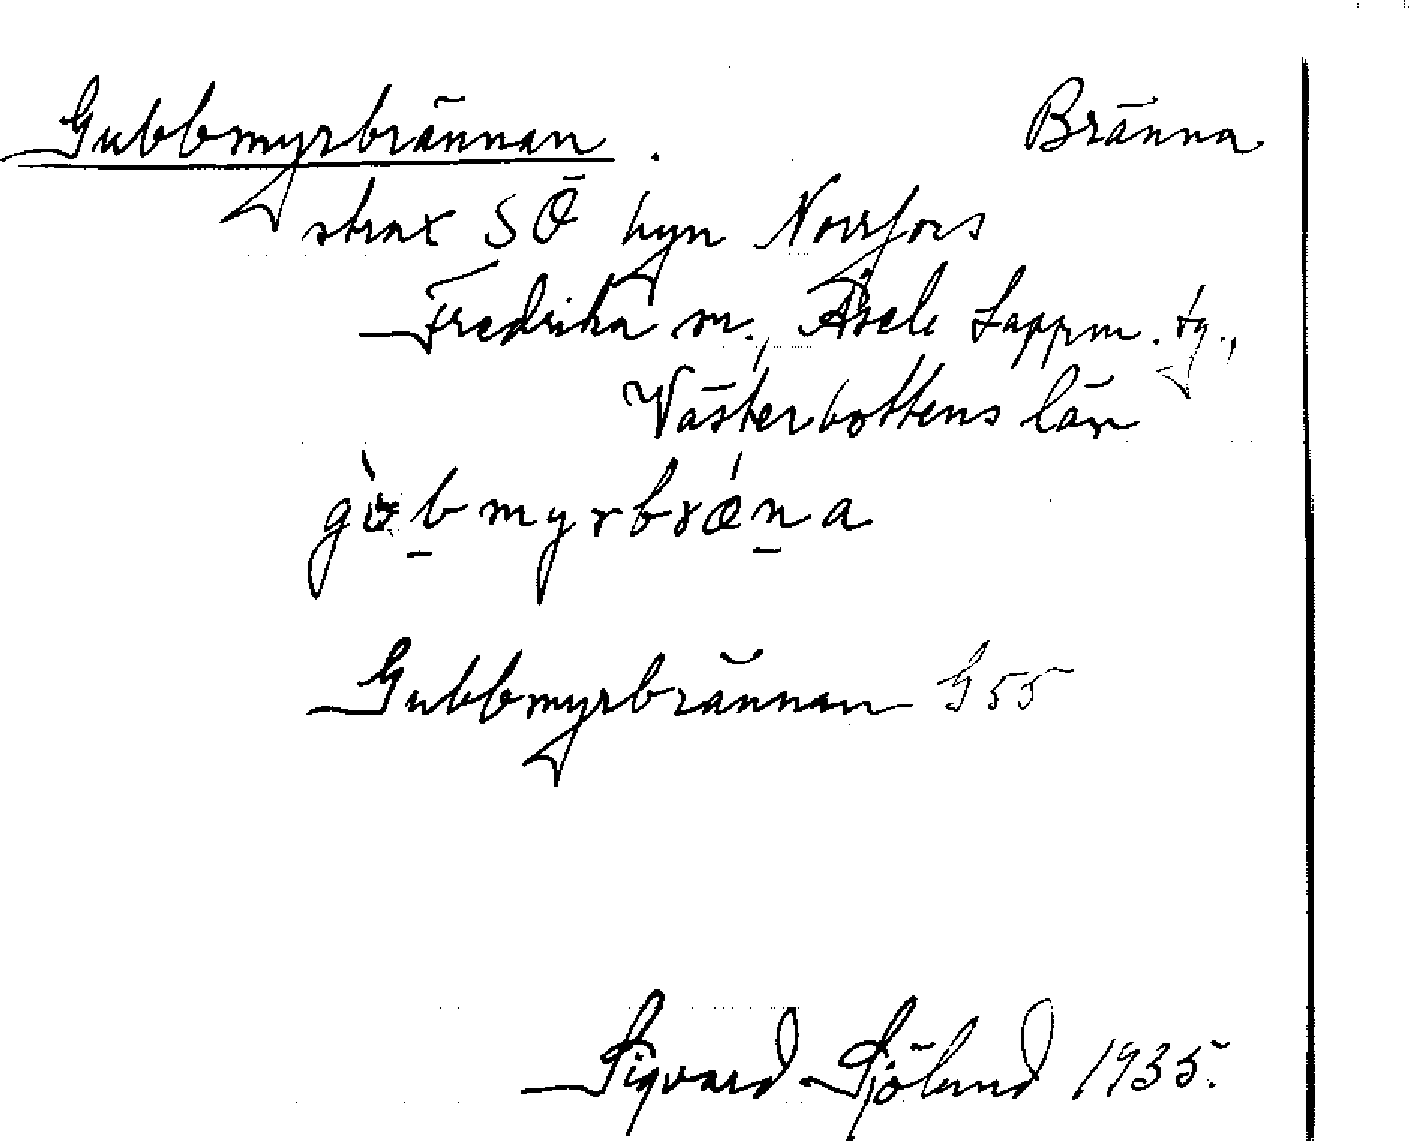 Gubbmyrbrännan. Bränna
strax SÖ byn Norrfors
Fredrika sn., Åsele Lappm. tg.,
Västerbottens län
gòb̲myrbrǽn̲a
Gubbmyrbrännan G55
Sigvard Sjölund 1935.